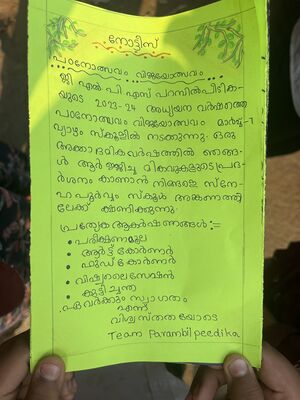 നോട്ടീസ്
പഠനോത്സവം വിജയോത്സവം
ജി എൽ പി എസ് പറമ്പിൽപീടിക-
യുടെ 2023-24 അധ്യയന വർഷത്തെ
പഠനോത്സവം വിജയോത്സവം മാർച്ച്-7
വ്യാഴം സ്കൂളിൽ നടക്കുന്നു. ഒരു
അക്കാദമികവർഷത്തിൽ ഞങ്ങ-
ൾ ആർജ്ജിച്ച മികവുകളുടെ പ്രദ-
ർശനം കാണാൻ നിങ്ങളെ സ്നേ-
ഹപൂർവ്വം സ്കൂൾ അങ്കണത്തി
ലേക്ക് ക്ഷണിക്കുന്നു.
പ്രത്യേക ആകർഷണങ്ങൾ:=
• പരീക്ഷണമൂല
• ആർട്ട് കോർണർ
• ഫുഡ് കോർണർ
• വിഷ്വലൈസേഷൻ
• കുട്ടിച്ചന്ത
ഏവർക്കും സ്വാഗതം
എന്ന്
വിശ്വസ്തതയോടെ
Team Parambilpeedika